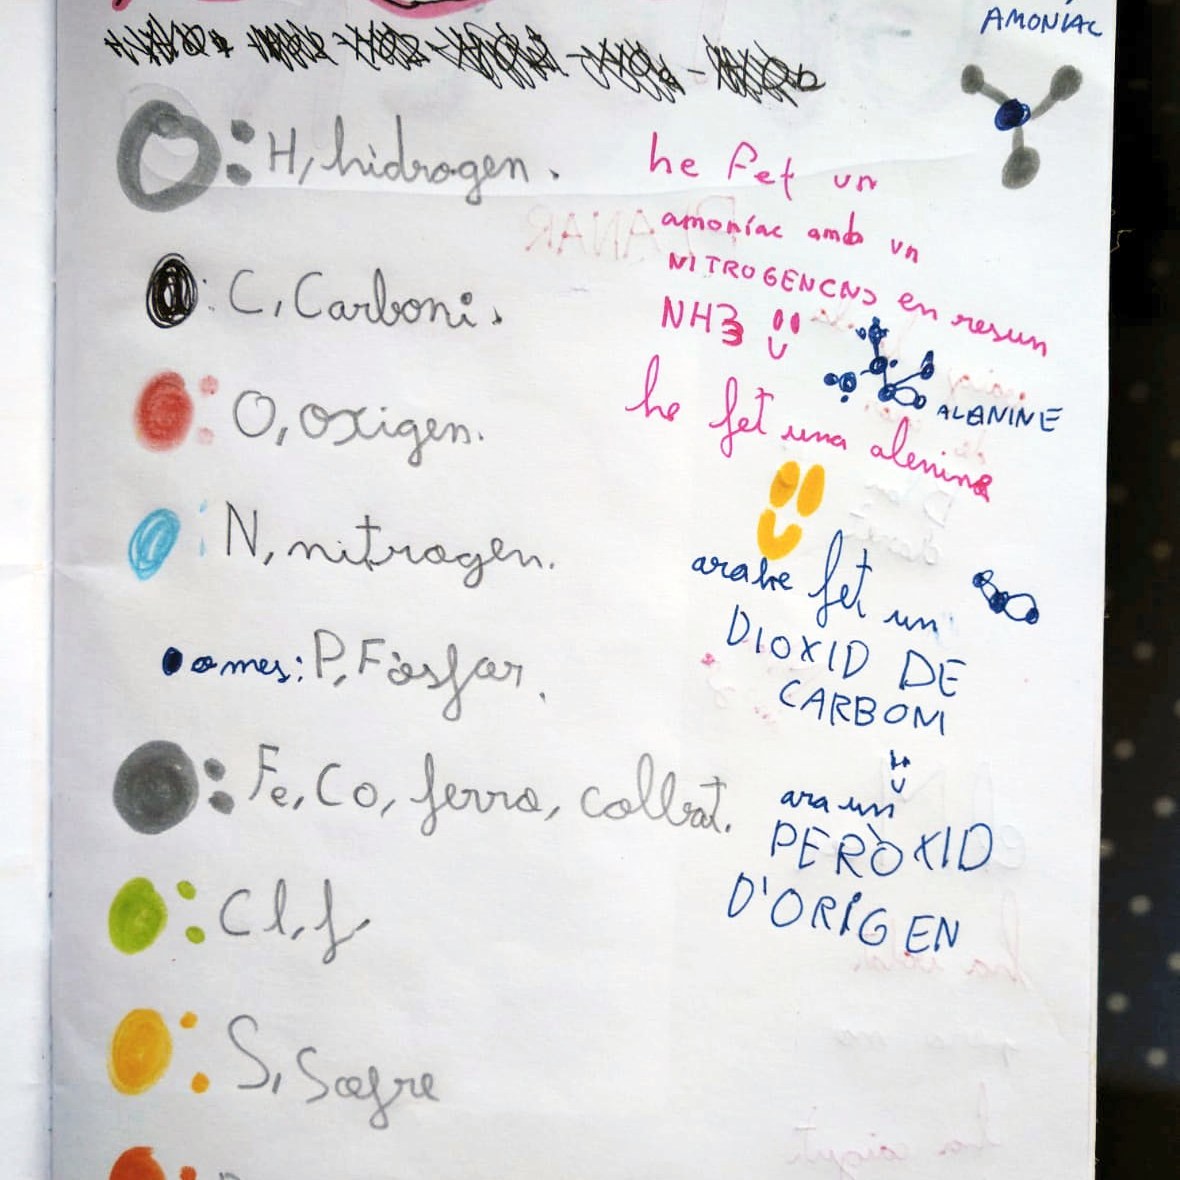 AMONIAC
: H, hidrogen.
: C, Carboni.
: O, oxigen.
: N, nitrogen.
o mes: P, Fòsfor.
: Fe, Co, ferro, colbat.
: Cl, f
: S, Sofre
he fet un
amoníac amb un
en resum
NH3
ALANINE
he fet una alenina
ara he fet un
DIOXID DE
CARBONI
ara un
PERÒXID
D'ORIGEN